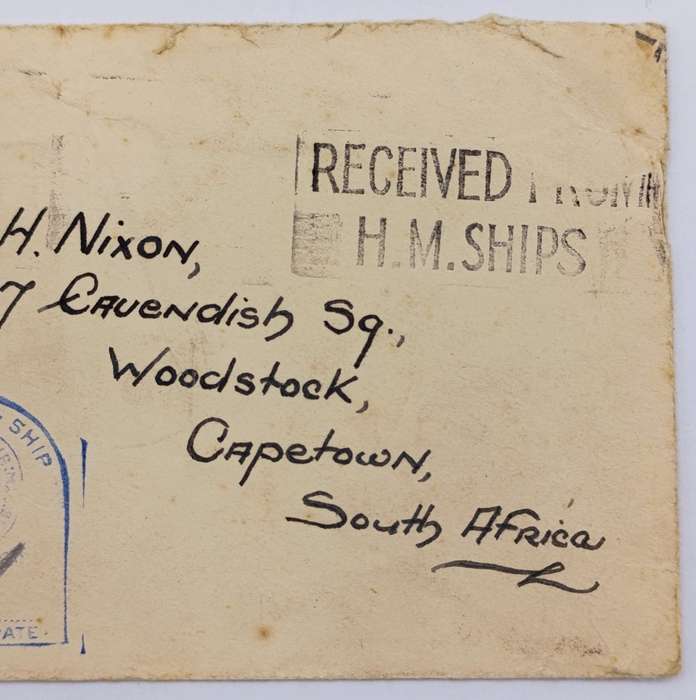 RECEIVED FROM
H.M.SHIPS
H. Nixon,
7 Cavendish Sq.,
Woodstock,
Capetown,
South Africa
SHIP